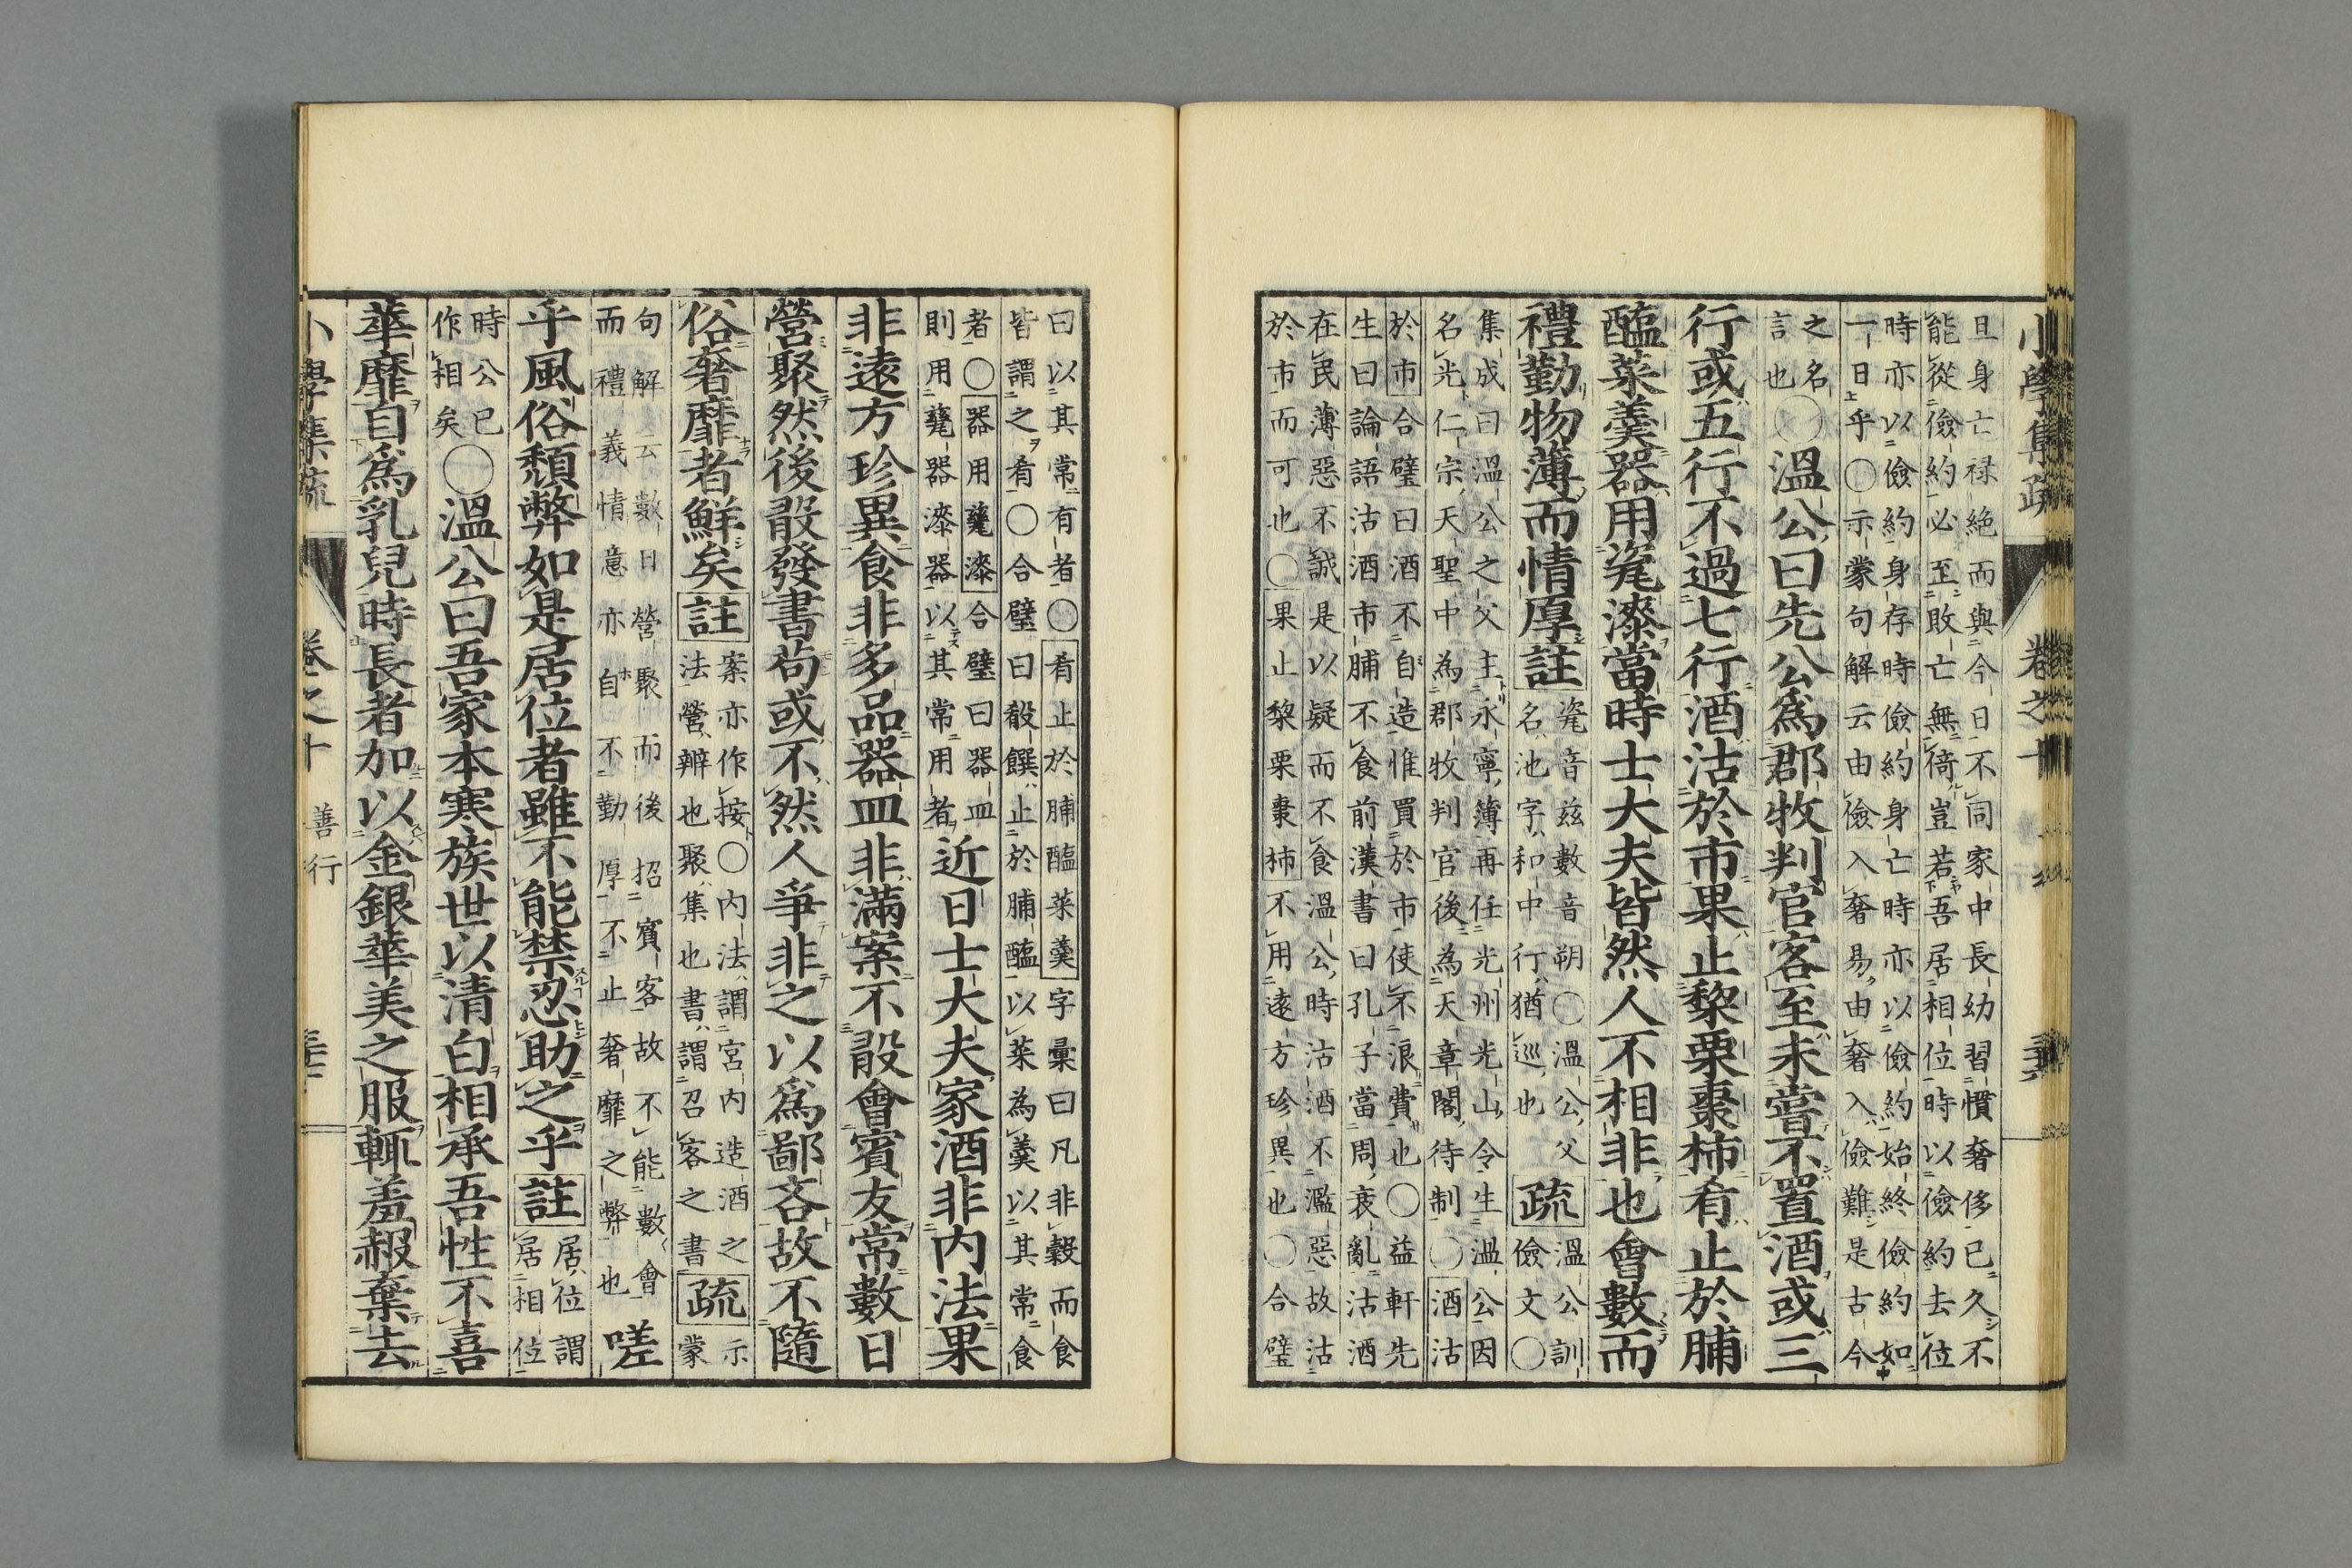 小學集疏　卷之十
旦身亡禄絶而與今日不同家中長幼習慣奢侈已久不
能從儉約必至敗亡無徛豈若吾居相位時以儉約去位
時亦以儉約身存時儉約身亡時亦以儉約始終儉約如
一日乎○示蒙句解云由儉入奢易由奢入儉難是古今
之名
言也○溫公曰先公爲郡牧判官客至未嘗不置酒或三
行或五行不過七行酒沽於市果止黎栗棗柿肴止於脯
醢菜羹器用甆漆當時士大夫皆然人不相非也會數而
禮勤物薄而情厚註
甆音兹數音朔○溫公父
名池字和中行猶巡也
疏
溫公訓
儉文○
集成曰溫公之父主永寧簿再任光州光山令生溫公因
名光仁宗天聖中為郡牧判官後為天章閣待制○酒沽
於市合璧曰酒不自造惟買於市使不浪費也○益軒先
生曰論語沽酒市脯不食前漢書曰孔子當周衰亂沽酒
在民薄惡不誠是以疑而不食溫公時沽酒不濫惡故沽
於市而可也○果止黎栗棗柿不用遠方珍異也○合璧
曰以其常有者○肴止於脯醢菜羹字彙曰凡非穀而食
皆謂之肴○合璧曰殽饌止於脯醢以菜為羹以其常食
者○器用甆漆合璧曰器皿
則用甆器漆器以其常用者
近日士大夫家酒非内法果
非遠方珍異食非多品器皿非滿案不敢會賓友常數日
營聚然後敢發書苟或不然人爭非之以爲鄙吝故不隨
俗奢靡者鮮矣註
案亦作按○内法謂宮内造酒之
法營辨也聚集也書謂召客之書
疏
示
蒙
句解云數日營聚而後招賓客故不能數會
而禮義情意亦自不勤厚不止奢靡之弊也
嗟
乎風俗頽弊如是居位者雖不能禁忍助之乎註
居位謂
居相位
時公已
作相矣
○溫公曰吾家本寒族世以清白相承吾性不喜
華靡自爲乳兒時長者加以金銀華美之服輒羞赧棄去
小學集疏　卷之十　善行